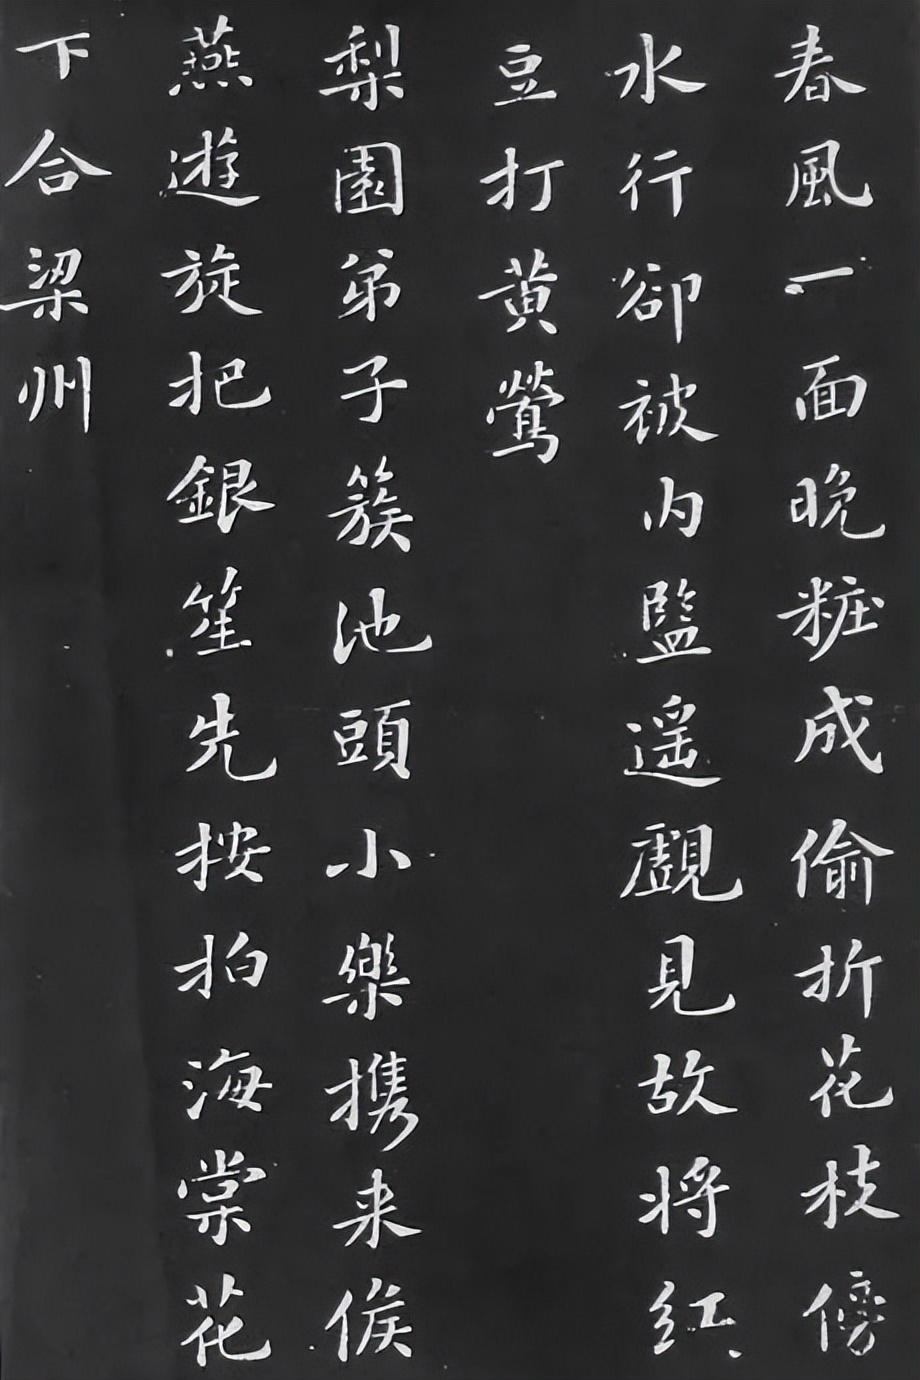 春風一面晚粧成偷折花枝傍
水行卻被內監遥覰見故將紅
豆打黄鶯
梨園弟子簇池頭小樂携来候
燕遊旋把銀笙先按拍海棠花
下合梁州